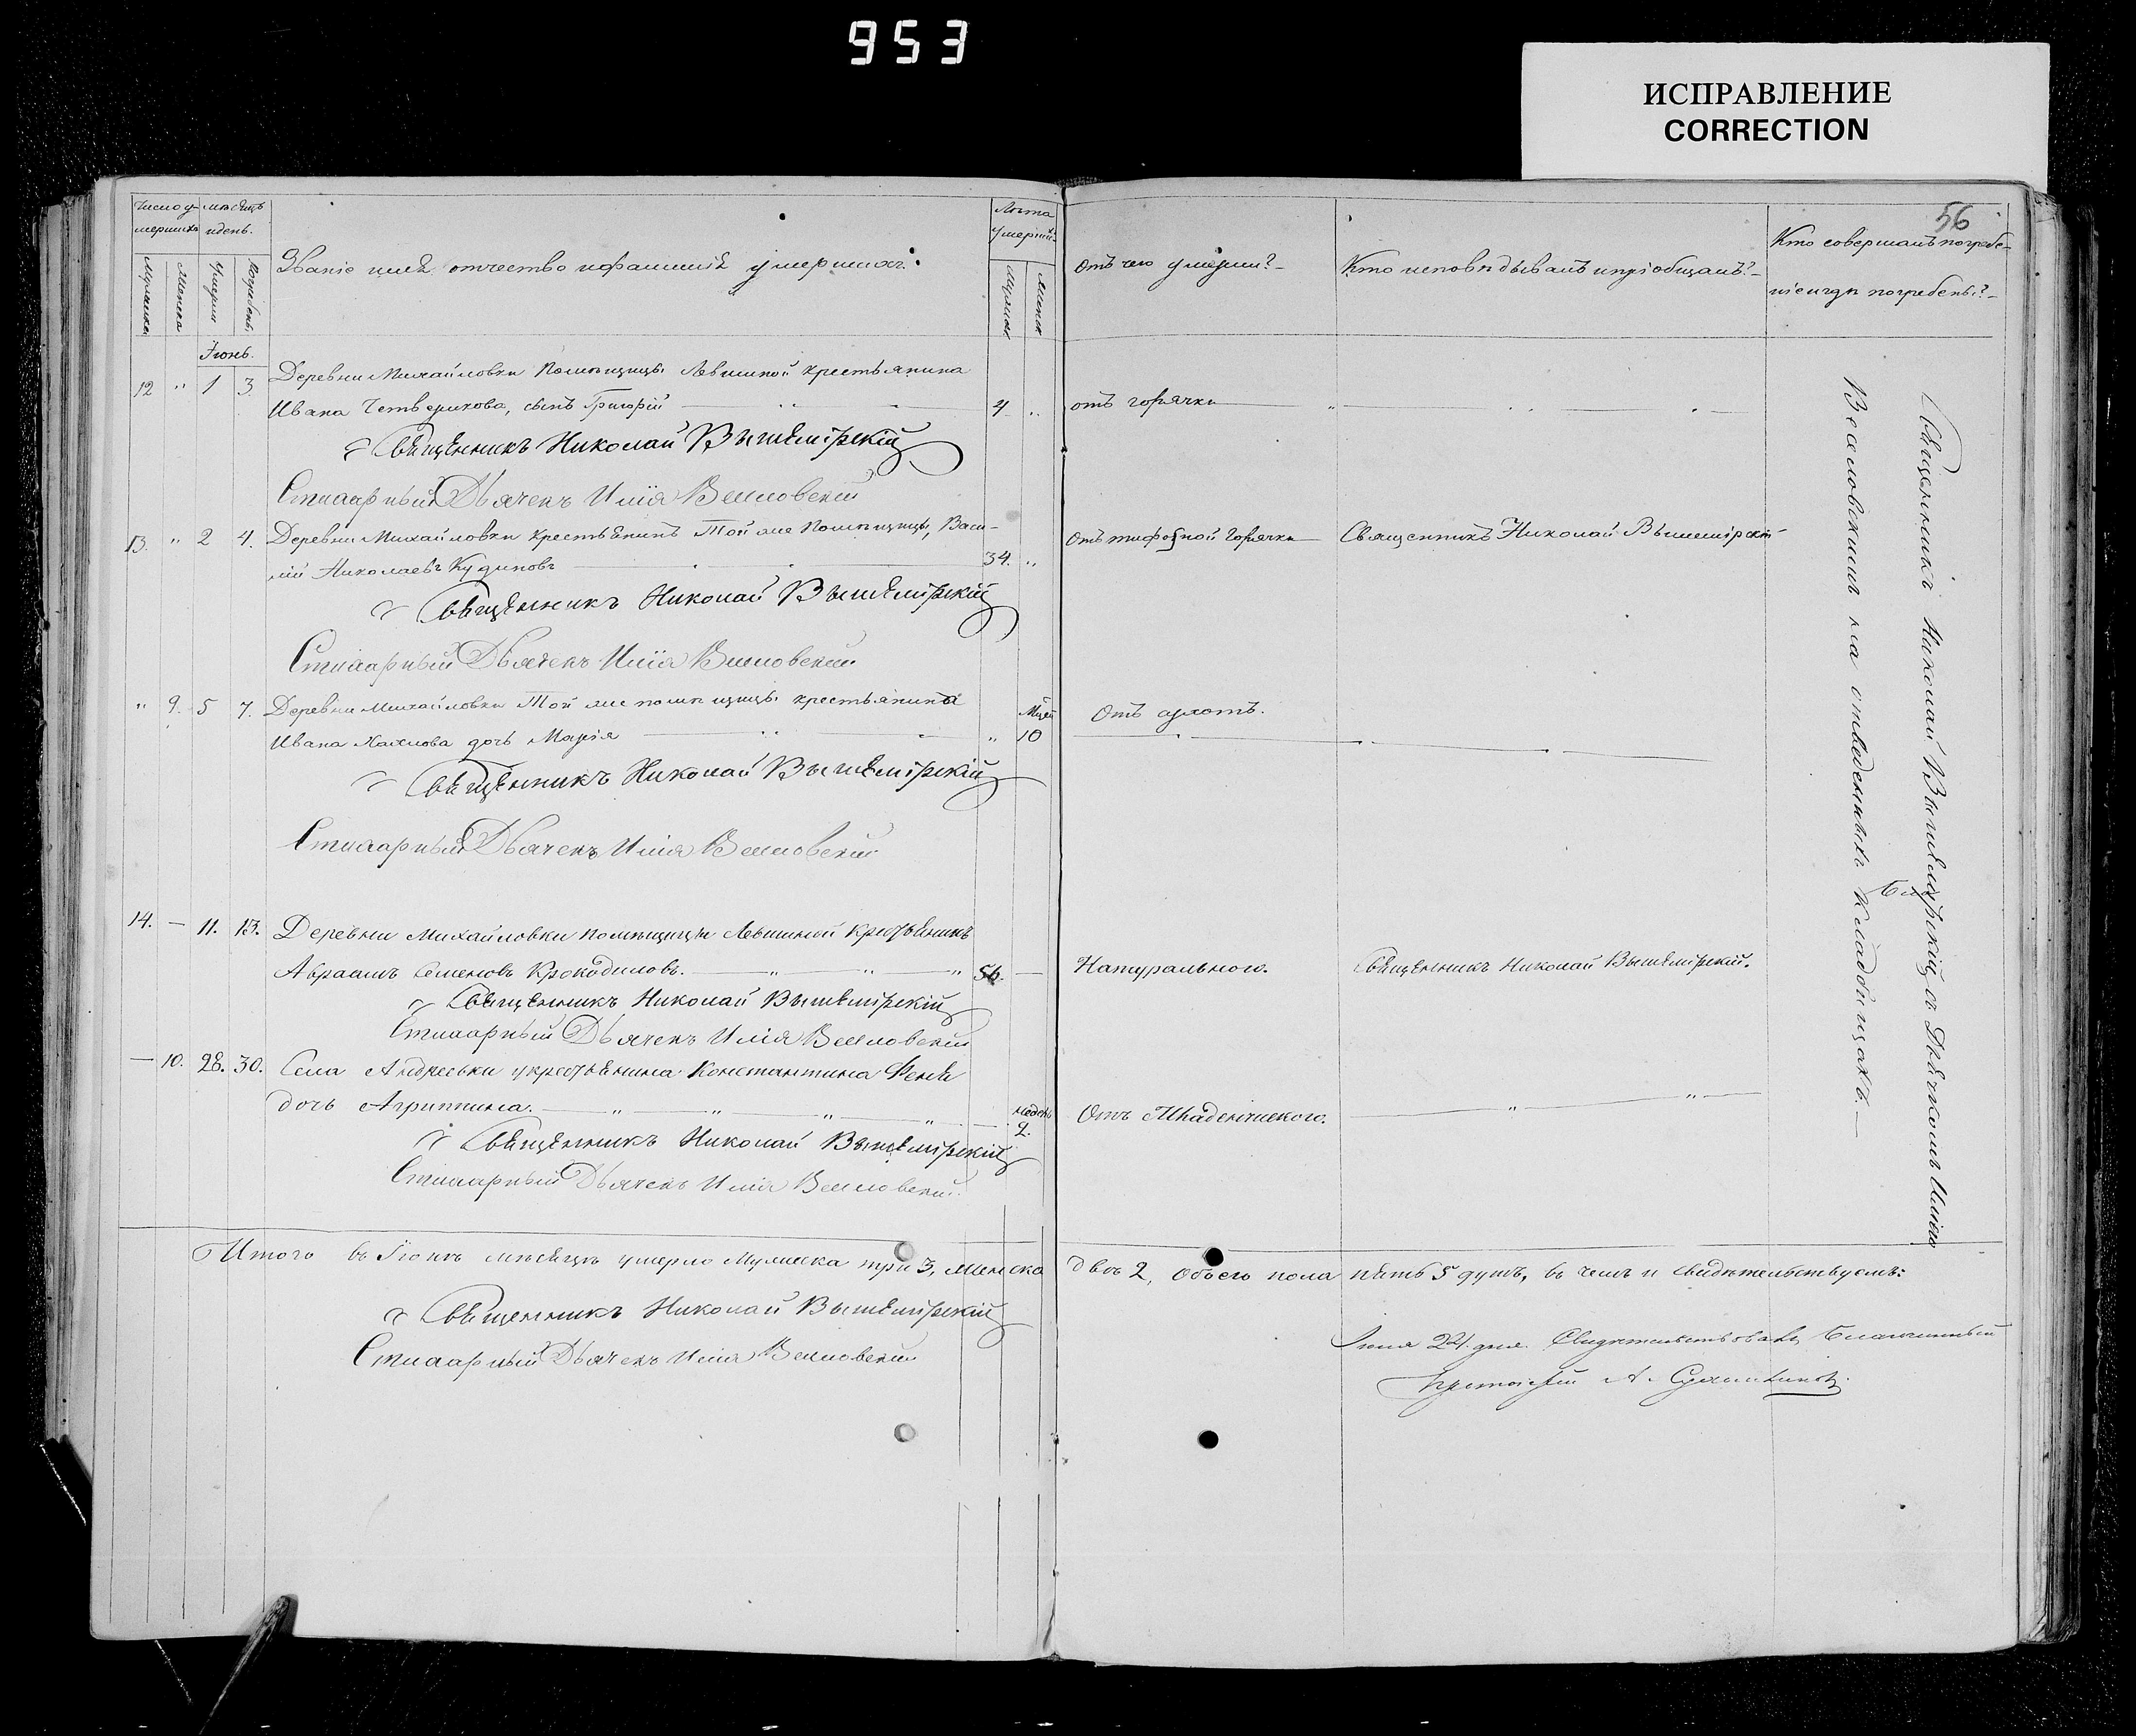 953
ИСПРАВЛЕНИЕ
CORRECTION
56
Число у-
мершихъ
мѣсяцъ
и день.
Званіе имя отчество и фамилія умершихъ.
Лѣта
умерши
Мужеска
Женска
Умерли
Погребены
Мужеск
Женск
Отъ чего умерли?
Кто исповѣдывалъ и пріобщалъ?
Кто совершалъ погребе-
ніе и гдѣ погребены?
Іюнь.
12 " 1 3 Деревни Михайловки Помѣщицы Левшиной крестьянина
Ивана Четверикова, сынъ Григорій 4 " отъ горячки
Священникъ Николай Вышемірскій
Стихарный Дьячекъ Илія
13. " 2 4. Деревни Михайловки крестьянинъ Той же Помѣщицы, Васи-
лій Николаевъ Кудиновъ 34. " Отъ тифозной горячки Священникъ Николай Вышемірскій
Священникъ Николай Вышемірскій
Стихарный Дьячекъ Илія
" 9. 5 7. Деревни Михайловки Той же помѣщицы крестьянина
Ивана дочь Марія " 10 Отъ
Священникъ Николай Вышемірскій
Стихарный Дьячекъ Илія
14. — 11. 13. Деревни Михайловки помѣщицы Левшиной крестьянинъ
Авраамъ Семеновъ Крокодиловъ. 56. — Натуральною. Священникъ Николай Вышемірскій.
Священникъ Николай Вышемірскій
Стихарный Дьячекъ Илія
— 10. 28. 30. Села Андреевки у крестьянина Константина
дочь Агриппина. недѣль 2. Отъ Младенческого.
Священникъ Николай Вышемірскій
Стихарный Дьячекъ Илія
Священникъ Николай Вышемірскій съ Дьячкомъ Иліею
на отведенныхъ кладбищахъ.
Итого въ Іюнѣ мѣсяцѣ умерло Мужеска три 3, Женска двѣ 2, Обоего пола пять 5 душъ, въ чемъ и свидѣтельствуемъ:
Священникъ Николай Вышемірскій
Стихарный Дьячекъ Илія
24. дня. Свидѣтельствовалъ Благочинный
Протоіерей А.